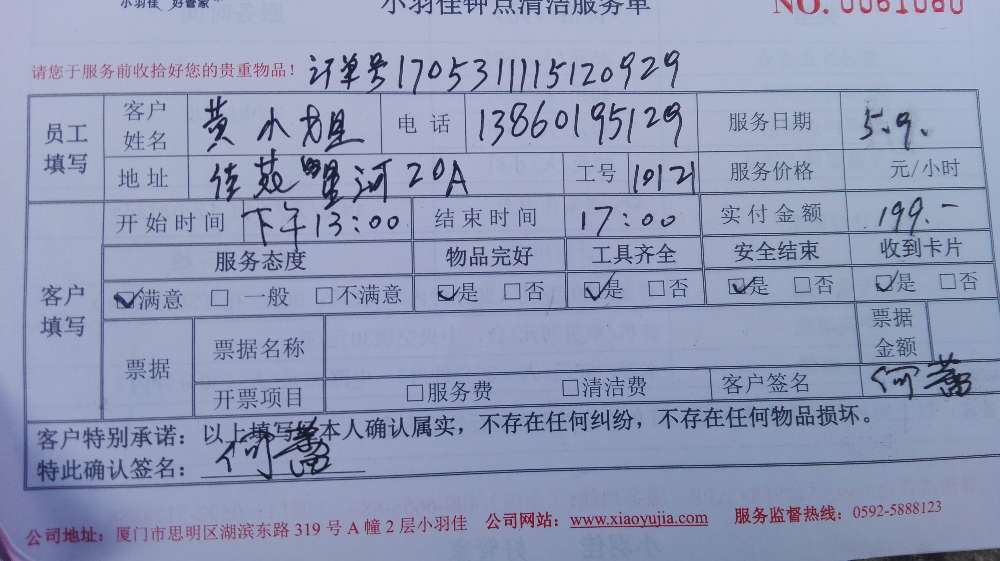 小羽佳 好管家
小羽佳钟点清洁服务单
NO. 0061080
请您于服务前收拾好您的贵重物品！ 订单号170531115120929
员工填写 客户姓名 黄小 电话 13860195129 服务日期 5.9.
地址 佳苑星河20A 工号 10121 服务价格 元/小时
客户填写 开始时间 下午13:00 结束时间 17:00 实付金额 199.-
服务态度 物品完好 工具齐全 安全结束 收到卡片
☑满意 □一般 □不满意 ☑是 □否 ☑是 □否 ☑是 □否 ☑是 □否
票据 票据名称 票据金额
开票项目 □服务费 □清洁费 客户签名 何
客户特别承诺：以上填写经本人确认属实，不存在任何纠纷，不存在任何物品损坏。
特此确认签名：何
公司地址：厦门市思明区湖滨东路319号A幢2层小羽佳 公司网站：www.xiaoyujia.com 服务监督热线：0592-5888123